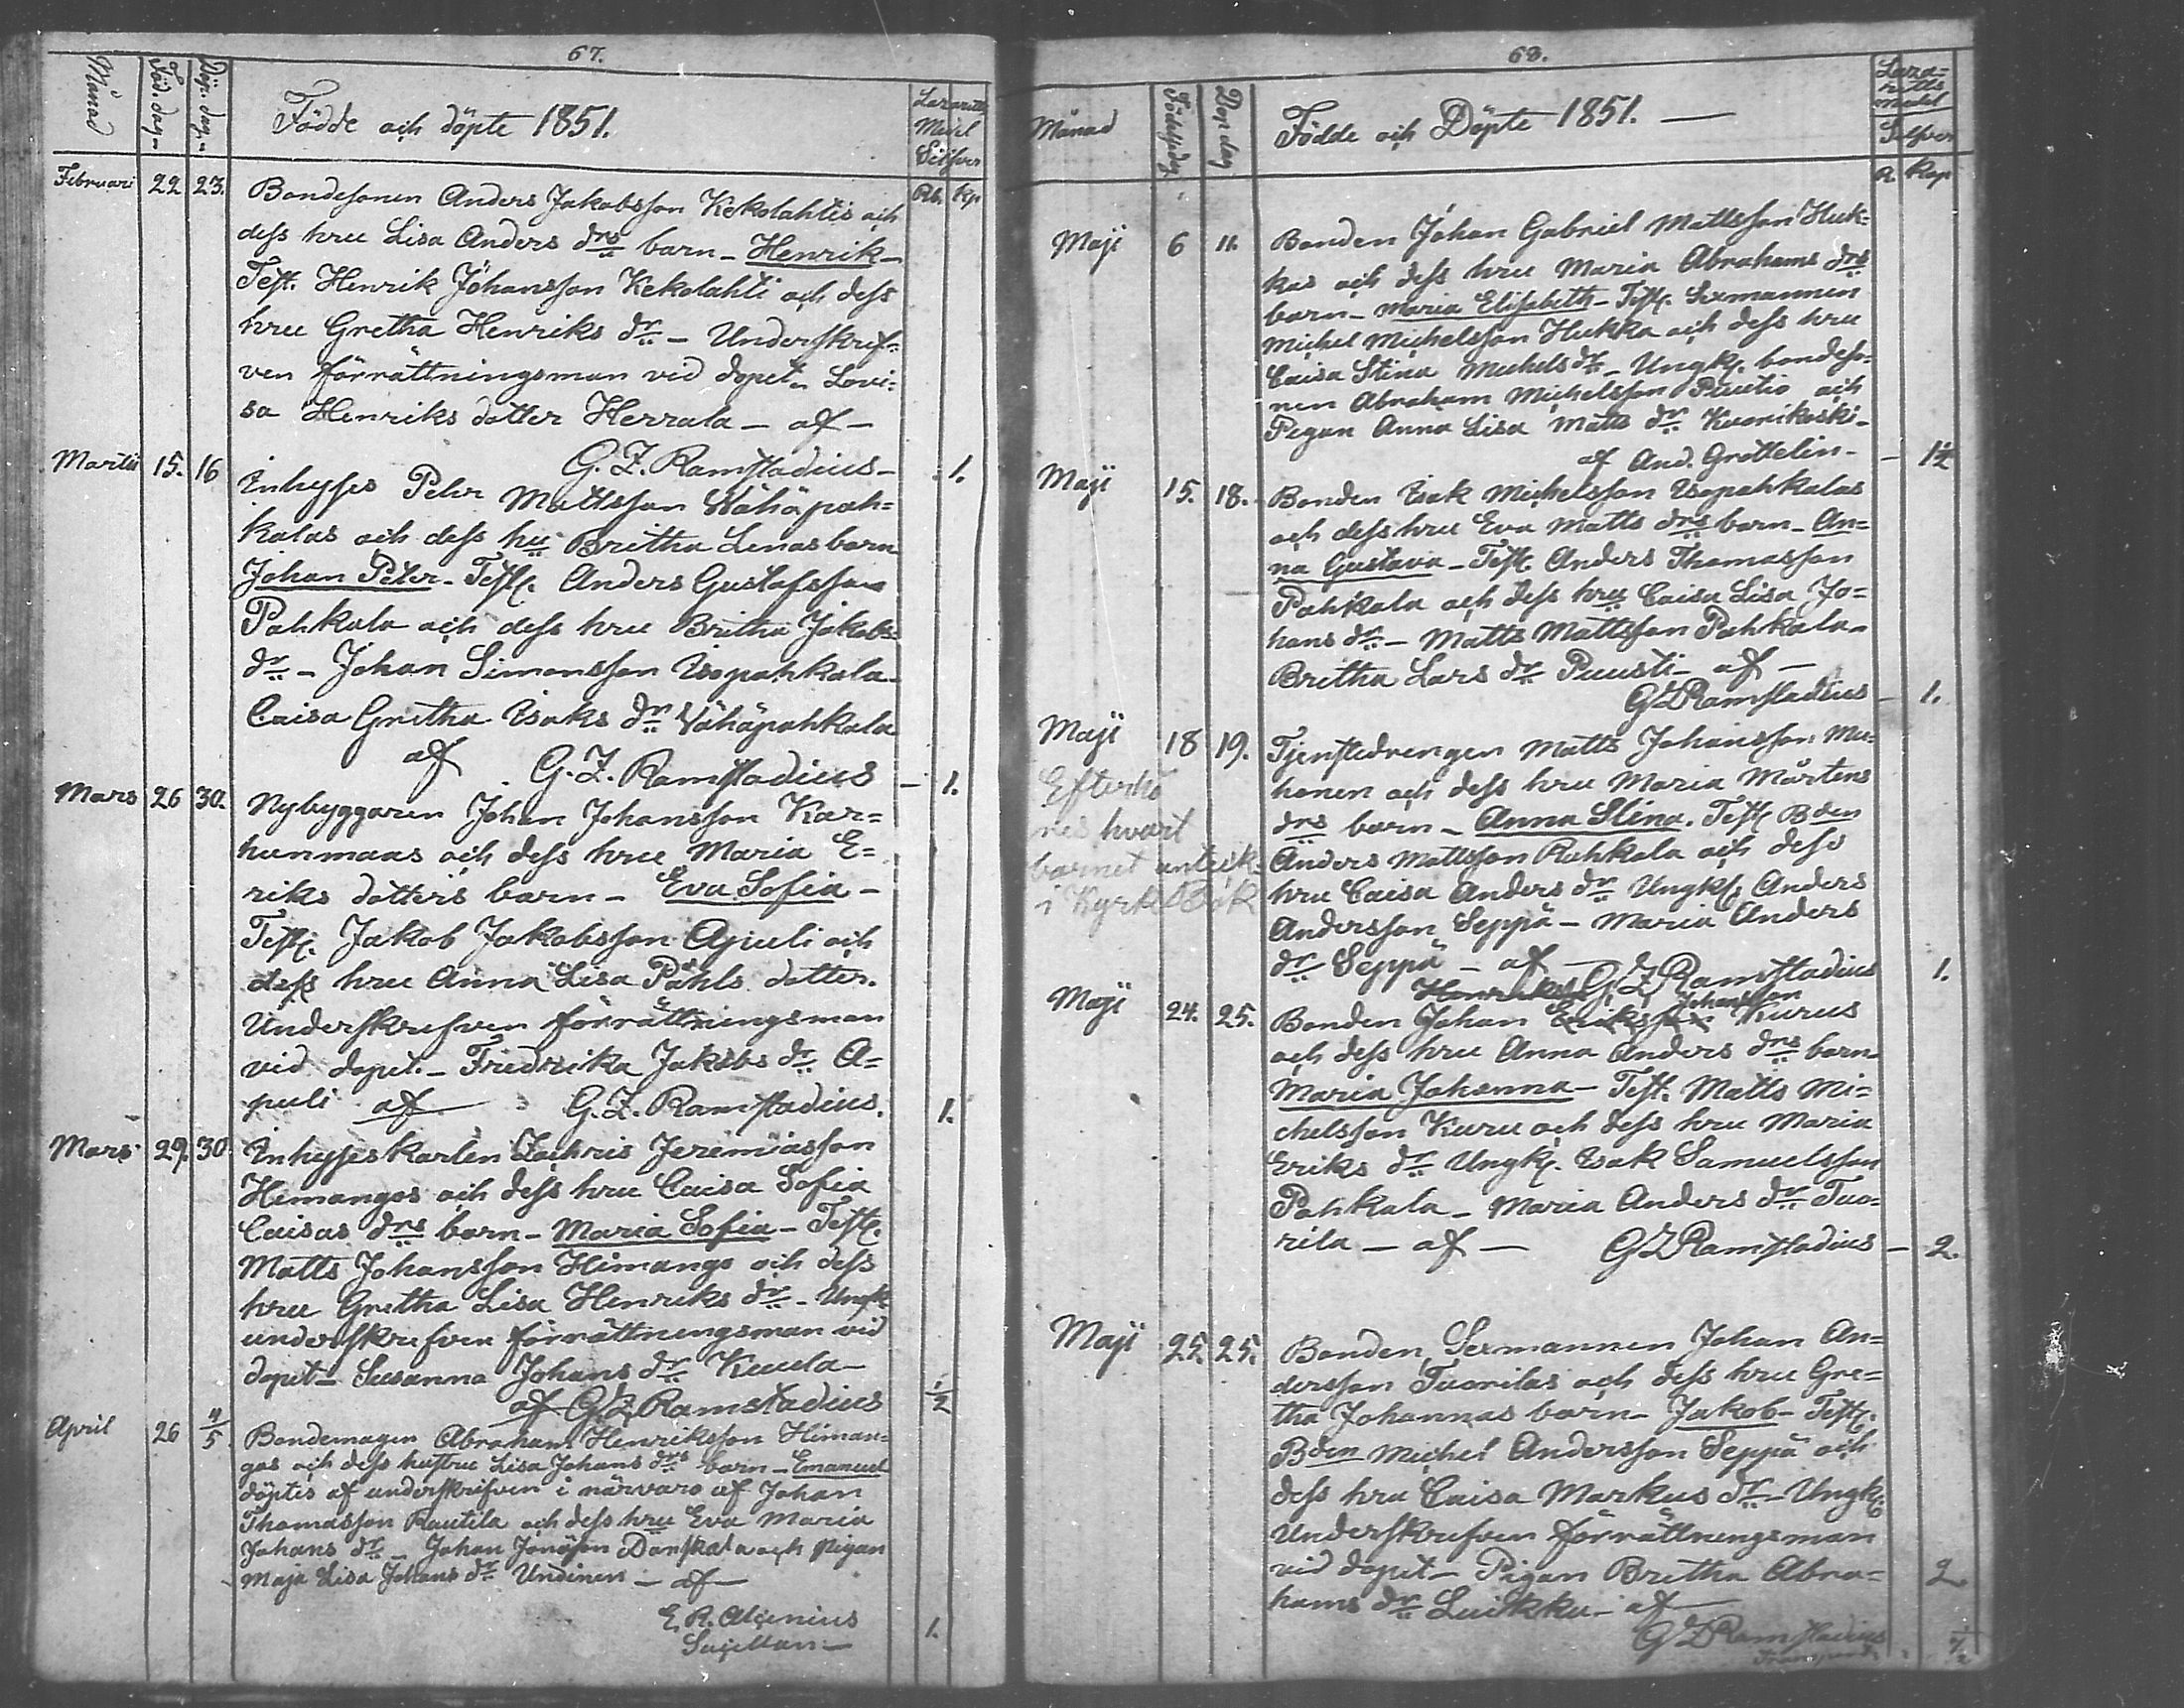 67.
Månad Föd. dag Döp. dag Födde och döpte 1851. Lazaretts Medel Silfver
Rb. Kp
Februari 22 23. Bondesonen Anders Jakobsson Kekolahtis och
dess hru Lisa Anders drs barn - Henrik -
Test. Henrik Johansson Kekolahti och dess
hru Gretha Henriks dr - Underskrif-
ven förrättningsman vid dopet - Lovi-
sa Henriks dotter Herrala - af -
G. Z. Ramstadius - 1.
Martii 15. 16 Inhyses Pehr Mattsson Vähäpah-
kalas och dess hu Britha Lenas barn
Johan Peter - Test. Anders Gustafsson
Pahkala och dess hru Britha Jakobs
dr - Johan Simonsson Isopahkala
Caisa Gretha Isaks dr Vähäpahkala
af G. Z. Ramstadius - 1.
Mars 26 30. Nybyggaren Johan Johansson Kar-
hunmaas och dess hru Maria E-
riks dotters barn - Eva Sofia -
Test. Jakob Jakobsson Apuli och
dess hru Anna Lisa Påhls dotter.
Underskrefven förrättningsman
vid dopet. - Fredrika Jakobs dr A-
puli af G. Z. Ramstadius. 1.
Mars 29. 30 Inhyseskarlen Zachris Jeremiasson
Himangos och dess hru Caisa Sofia
Caisas drs barn - Maria Sofia - Test.
Matts Johansson Himango och dess
hru Gretha Lisa Henriks dr - Ungk.
underskrefven förrättningsman vid
dopet - Susanna Johans dr Kuula -
af G. Z. Ramstadius 1/2
April 26 4/5 Bondemagen Abraham Henriksson Himan-
gos och dess hustru Lisa Johans drs barn - Emanuel
döptes af underskrifven i närvaro af Johan
Thomasson Rautila och dess hru Eva Maria
Johans dr - Johan Jonasson Danska och Pigan
Maja Lisa Johans dr Undinen - af -
E. R. Alcenius
1.
68.
Månad Födelsedag Dop dag Födde och Döpte 1851. - Laza-
retts
medel
Silfver
R. Kop
Maji 6 11. Bonden Johan Gabriel Mattsson Huk-
kas och dess hru Maria Abrahams drs
barn - Maria Elisabeth - Test. Sexmannen
Michel Michelsson Hukka och dess hru
Caisa Stina Michels dr - Ungk. bondeso-
nen Abraham Michelsson Pautio och
Pigan Anna Lisa Matts dr Kuorikoski -
af And. Grottelin - - 1 1/2
Maji 15. 18. Bonden Isak Michelsson Isopahkalas
och dess hru Eva Matts drs barn - An-
na Gustava - Test. Anders Thomasson
Pahkala och dess hru Caisa Lisa Jo-
hans dr - Matts Mattsson Pahkala -
Britha Lars dr Puusti - af -
G Z Ramstadius - 1.
Maji 18 19. Tjenstedrengen Matts Johansson Mu-
honen och dess hru Maria Mårtens
drs barn - Anna Stina. Test Bden
Anders Mattsson Rahkola och dess
hru Caisa Anders dr Ungk. Anders
Andersson Seppä - Maria Anders
dr Seppä - af - G Z Ramstadius 1.
Efterhö
res hvart
barnet anteck.
i Kyrko Bok
Maji 24. 25. Bonden Johan Eriksson Johansson Kurus
och dess hru Anna Anders drs barn
Maria Johanna - Test. Matts Mi-
chelsson Kuru och dess hru Maria
Eriks dr Ungk. Isak Samuelsson
Pahkala - Maria Anders dr Tuo-
rila - af - G Z Ramstadius - 2.
Maji 25. 25. Bonden, Sexmannen Johan An-
dersson Tuorilas och dess hru Gre-
tha Johannas barn - Jakob - Test.
Bden Michel Andersson Seppä och
dess hru Caisa Markus dr - Ungk.
Underskrefven förrättningsman
vid dopet - Pigan Britha Abra- 2
hams dr Luikku - af -
G Z Ramstadius